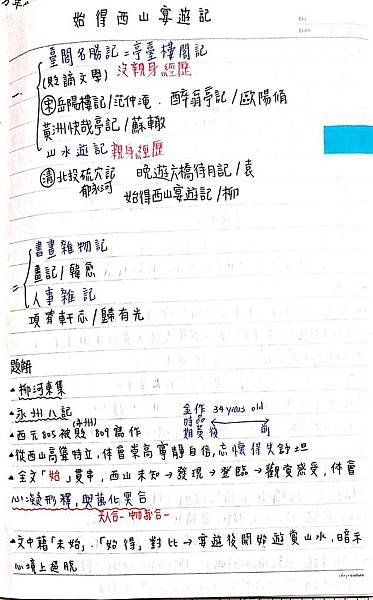 始得西山宴遊記
臺閣名勝記=亭臺樓閣記
(貶謫文學) 沒親身經歷
一、
宋 岳陽樓記/范仲淹．醉翁亭記/歐陽脩
黃州快哉亭記/蘇轍
山水遊記 親身經歷
清 北投硫穴記 晚遊六橋待月記/袁
郁永河
始得西山宴遊記/柳
書畫雜物記
二
畫記/韓愈
人事雜記
項脊軒志/歸有光
題解
柳河東集
永州八記
全作 34 years old
時品
期黃後 前
(永州)
西元805被貶 809寫作
從西山高聳特立，体會崇高寧靜自信，忘懷得失舒坦
全文「始」貫串，西山未知→發現→登臨→觀賞感受，体會
心凝形釋，與萬化冥合
天人合一 物我合一
文中藉「未始」．「始得」對比→宴遊後開始遊賞山水，暗示
心境上超脫